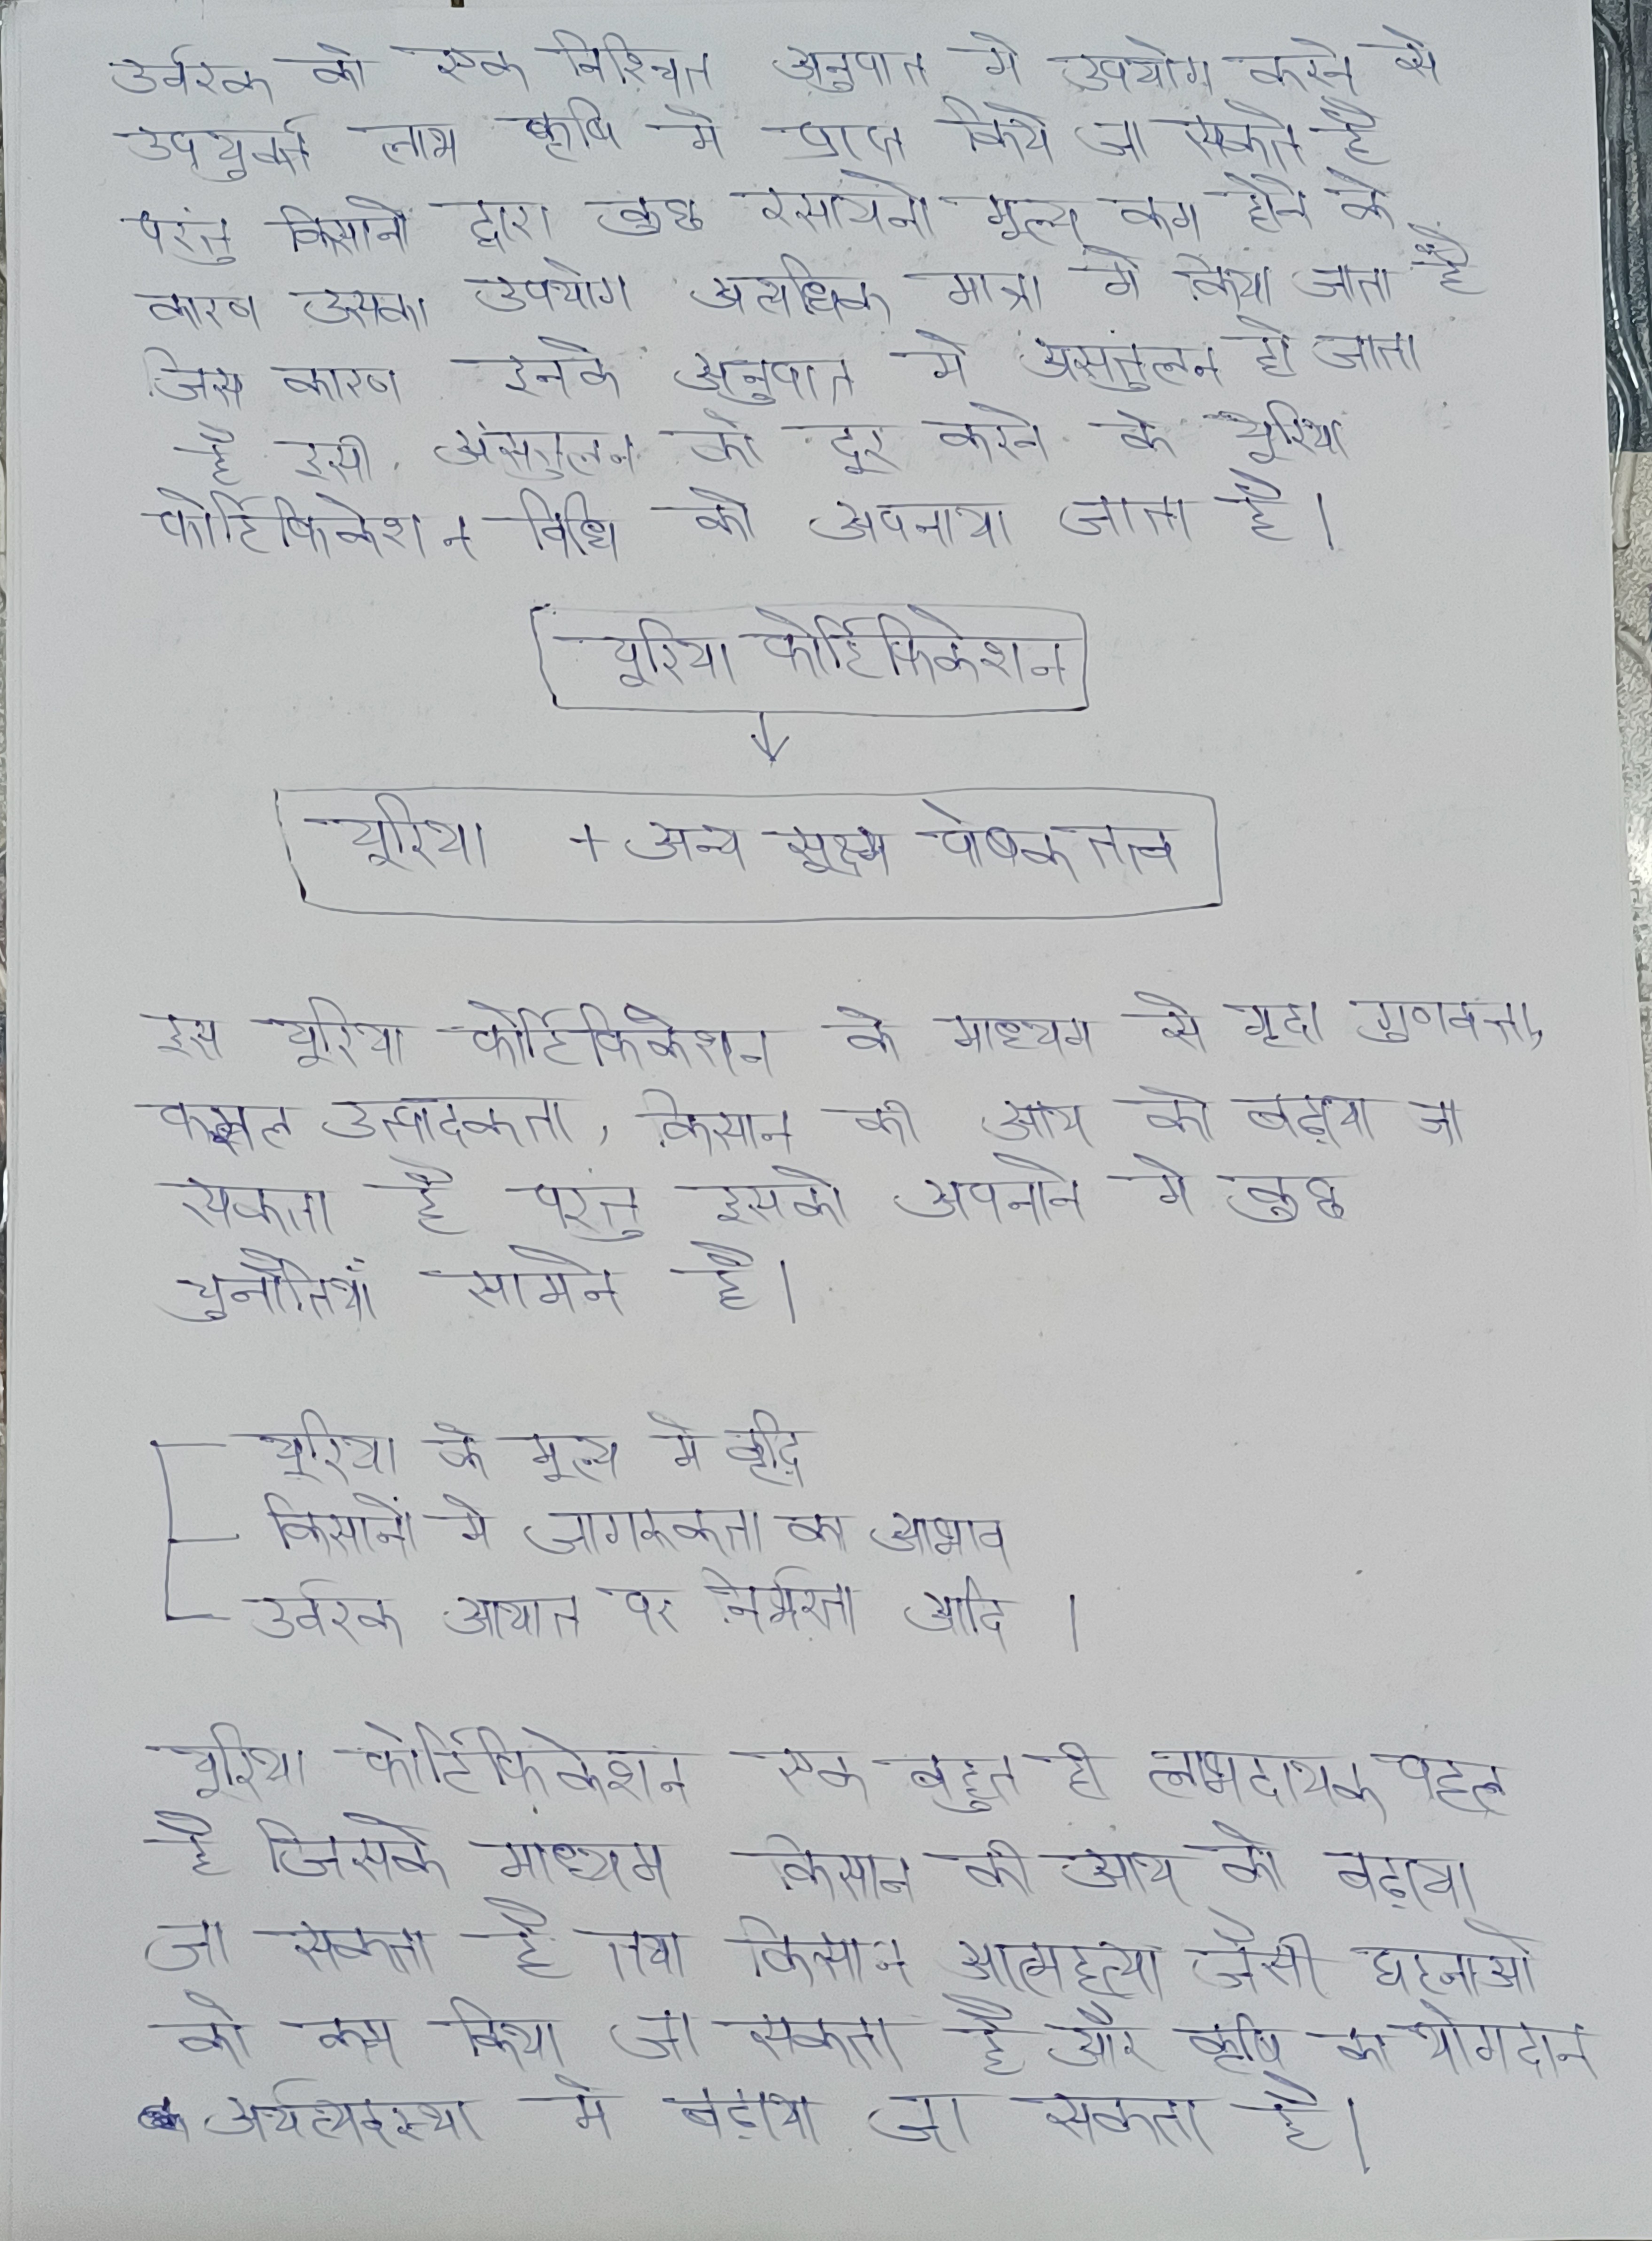 उर्वरक को एक निश्चित अनुपात मे उपयोग करने से
उपयुक्त लाभ कृषि मे प्राप्त किये जा सकते है
परंतु किसानो द्वारा कुछ रसायनो मूल्य कम होने के
कारण उसका उपयोग अत्यधिक मात्रा मे किया जाता है
जिस कारण इनके अनुपात मे असंतुलन हो जाता
है इसी असंतुलन को दूर करने के यूरिया
फोर्टिफिकेशन विधि को अपनाया जाता है।
यूरिया फोर्टिफिकेशन
↓
यूरिया + अन्य सूक्ष्म पोषक तत्व
इस यूरिया फोर्टिफिकेशन के माध्यम से मृदा गुणवत्ता,
फसल उत्पादकता, किसान की आय को बढ़ाया जा
सकता है परंतु इसको अपनाने मे कुछ
चुनौतियाँ सामने है।
यूरिया के मूल्य मे वृद्धि
किसानों मे जागरुकता का आभाव
उर्वरक आयात पर निर्भरता आदि ।
यूरिया फोर्टिफिकेशन एक बहुत ही लाभदायक पहल
है जिसके माध्यम किसान की आय को बढ़ाया
जा सकता है तथा किसान आत्महत्या जैसी घटनाओ
को कम किया जा सकता है और कृषि का योगदान
अर्थव्यवस्था मे बढ़ाया जा सकता है।